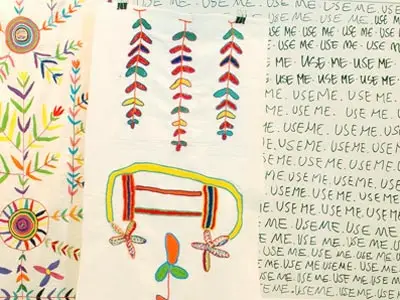 USE ME. USE ME. USE ME. USE ME. USE ME.
SE ME. USE ME. USE ME. USE ME.
USE ME. USE ME. USE ME.
USE ME. USE ME. USE ME.
USE ME. USE ME. USE ME.
USE ME. USE ME. USE ME.
USE ME. USE ME. USE ME.
USE ME. USE ME. USE ME.
USE ME. USE ME. USE ME.
USE ME. USE ME. USE ME.
USE ME. USE ME. USE ME.
USE ME. USE ME. USE ME.
USE ME. USE ME. USE ME.
USE ME. USE ME. USE ME.
USE ME. USE ME. USE ME.
USE ME. USE ME. USE ME.
USE ME. USE ME. USE ME.